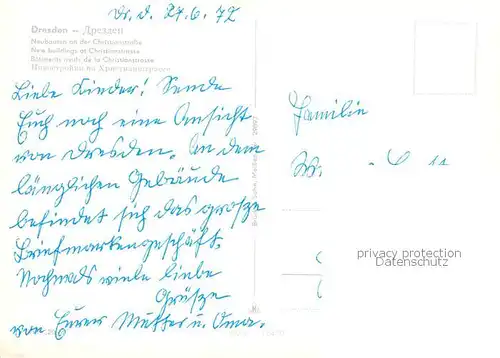 Dr. d. 27.6.72
Dresden – Дрезден
Neubauten an der Christianstraße
New buildings at Christianstrasse
Bâtiments neufs de la Christianstrasse
Liebe Kinder! Sende
Euch noch eine Ansicht
von Dresden. An dem
länglichen Gebäude
befindet sich das grosze
Briefmarkengeschäft.
Nochmals viele liebe
Grüsze
von Eurer Mutter u. Oma.
Familie
privacy protection
Datenschutz